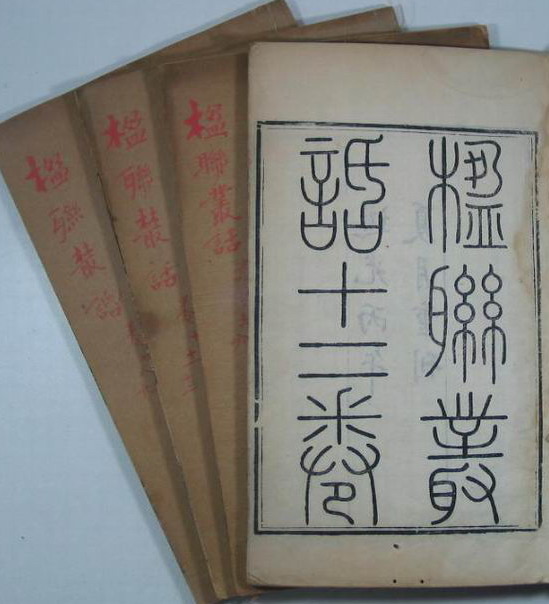 楹聯叢
話十二卷
楹聯叢話
楹聯叢話
楹聯叢話